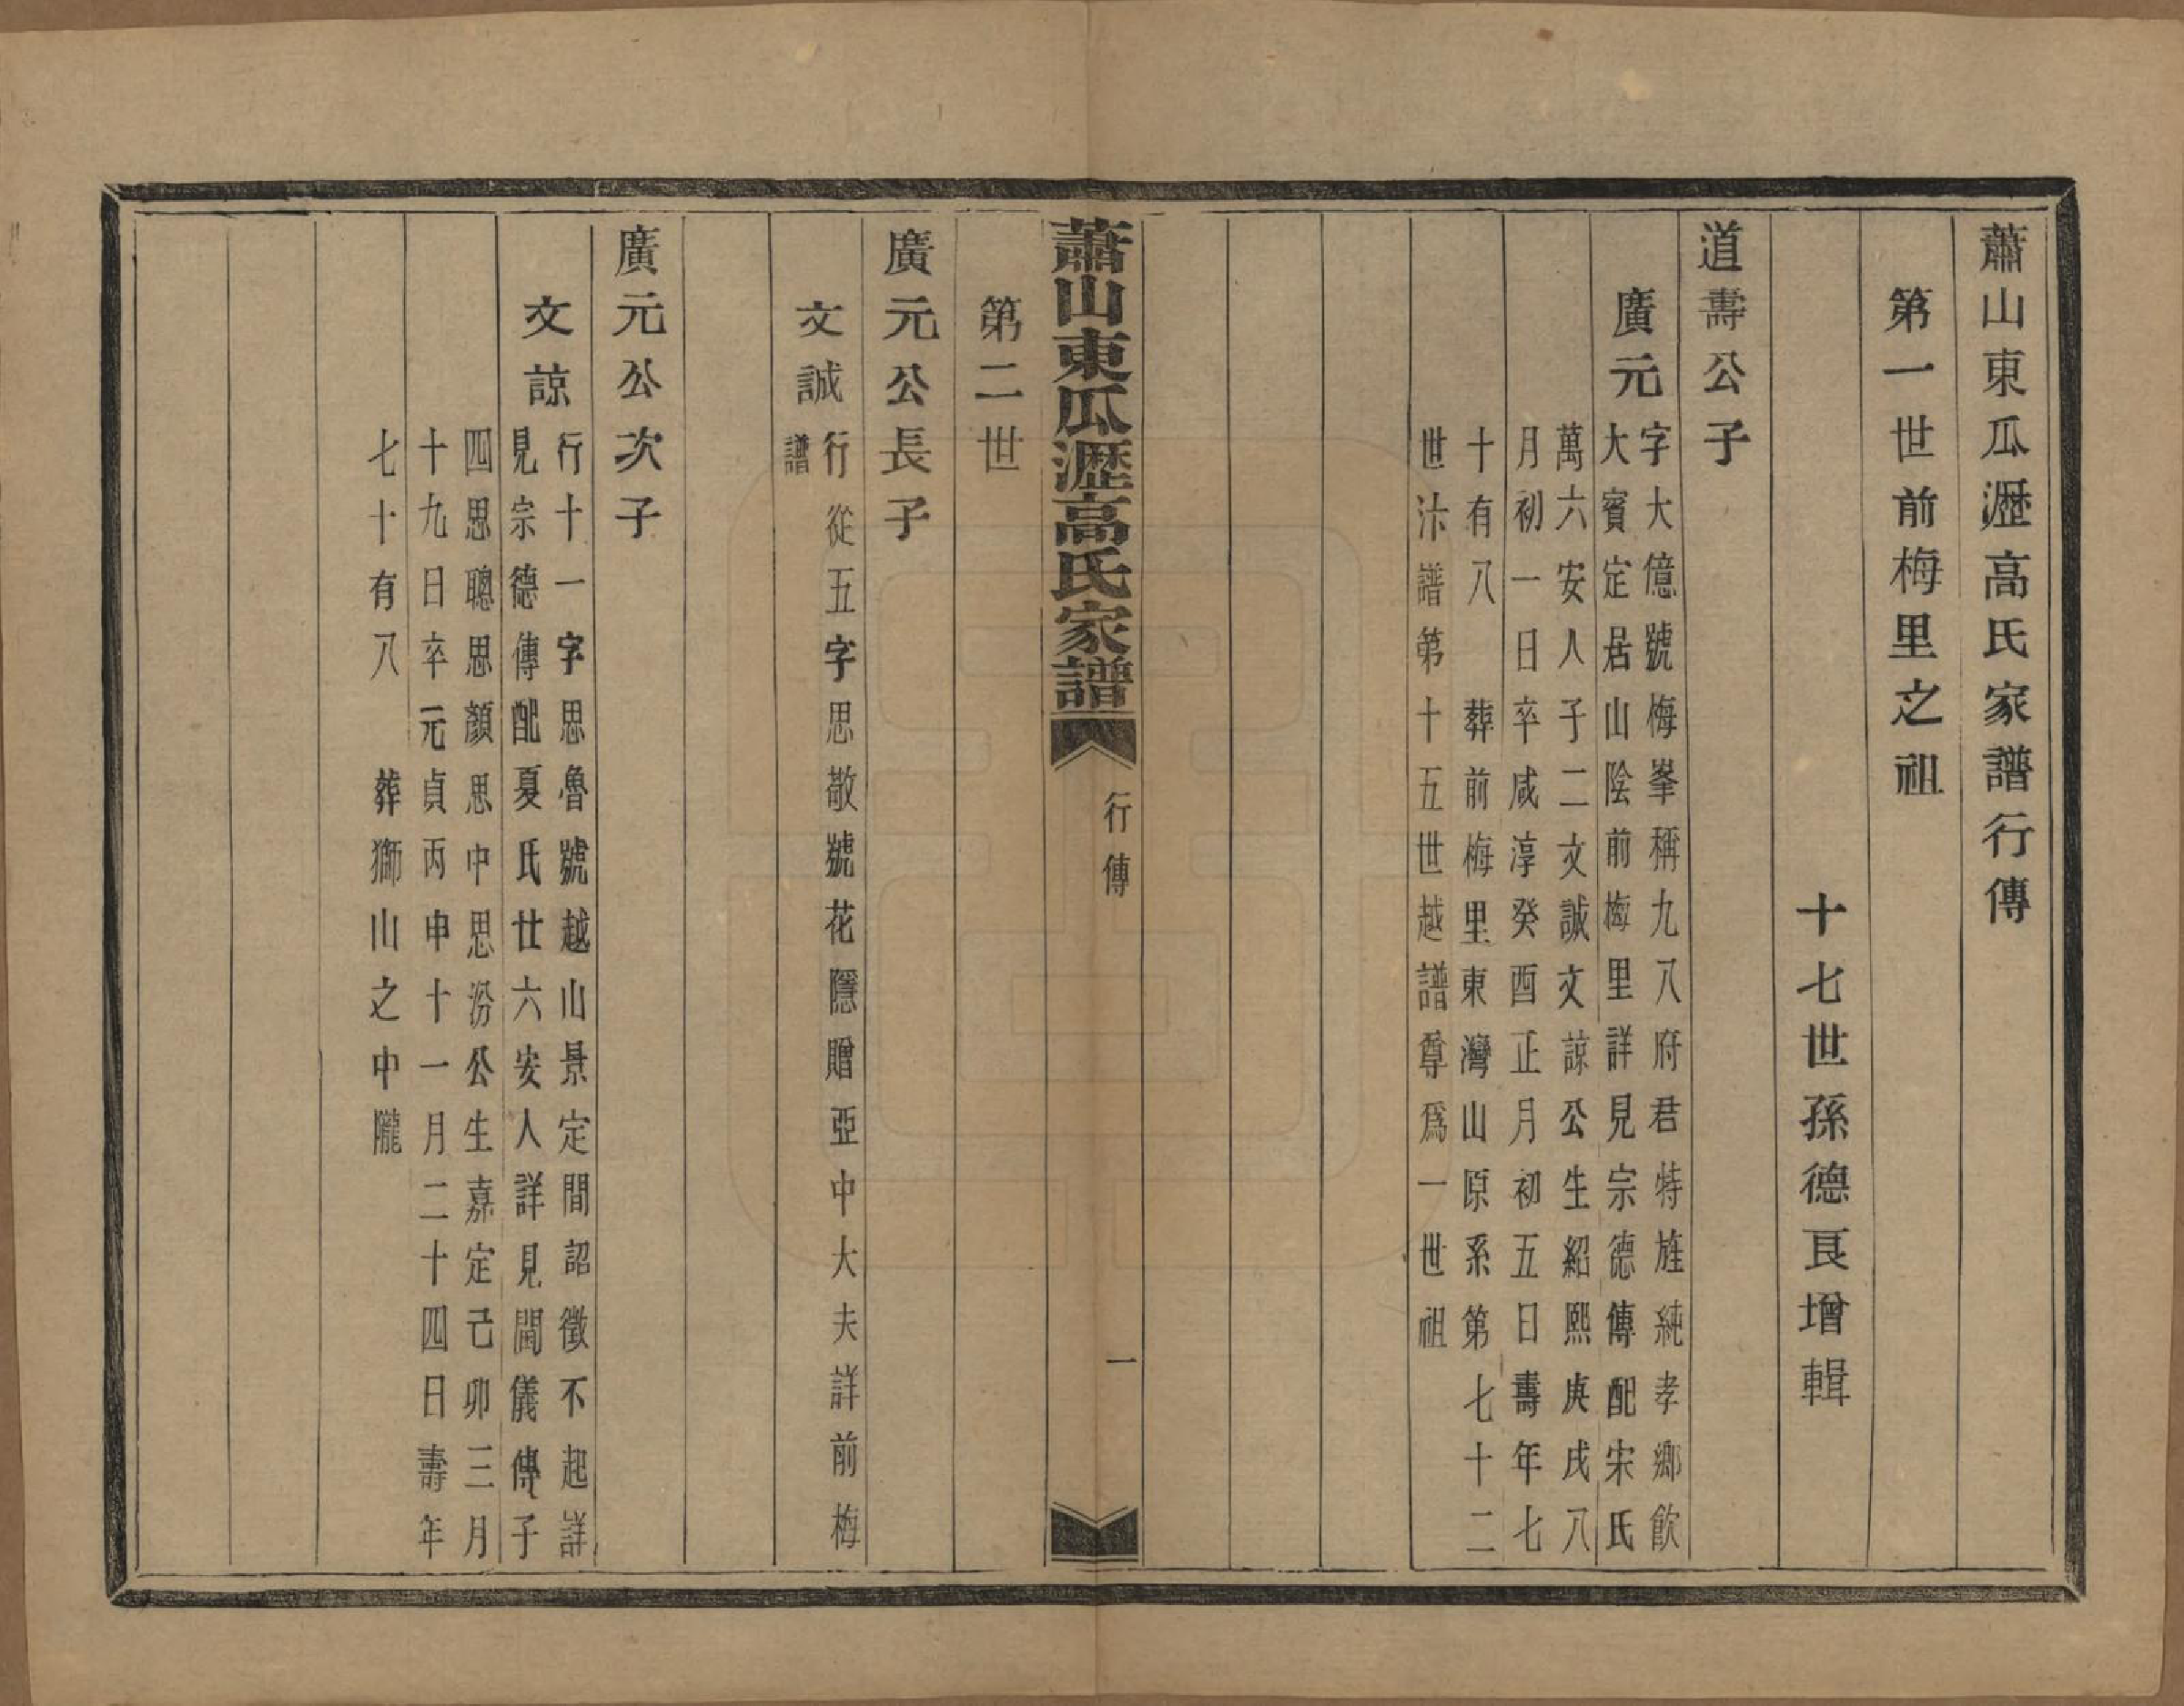 蕭山東瓜瀝高氏家譜行傳
第一世前梅里之祖
十七世孫德良增輯
道壽公子
廣元
字大億號梅峯稱九八府君特旌純孝鄉飲
大賓定居山陰前梅里詳見宗德傳配宋氏
萬六安人子二文誠文諒公生紹熙庚戌八
月初一日卒咸淳癸酉正月初五日壽年七
十有八　葬前梅里東灣山原系第七十二
世汴譜第十五世越譜尊爲一世祖
蕭山東瓜瀝高氏家譜
行傳
一
第二世
廣元公長子
文誠
行從五字思敬號花隱贈亞中大夫詳前梅
譜
廣元公次子
文諒
行十一字思魯號越山景定間詔徵不起詳
見宗德傳配夏氏廿六安人詳見閫儀傳子
四思聰思顏思中思汾公生嘉定己卯三月
十九日卒元貞丙申十一月二十四日壽年
七十有八　葬獅山之中隴